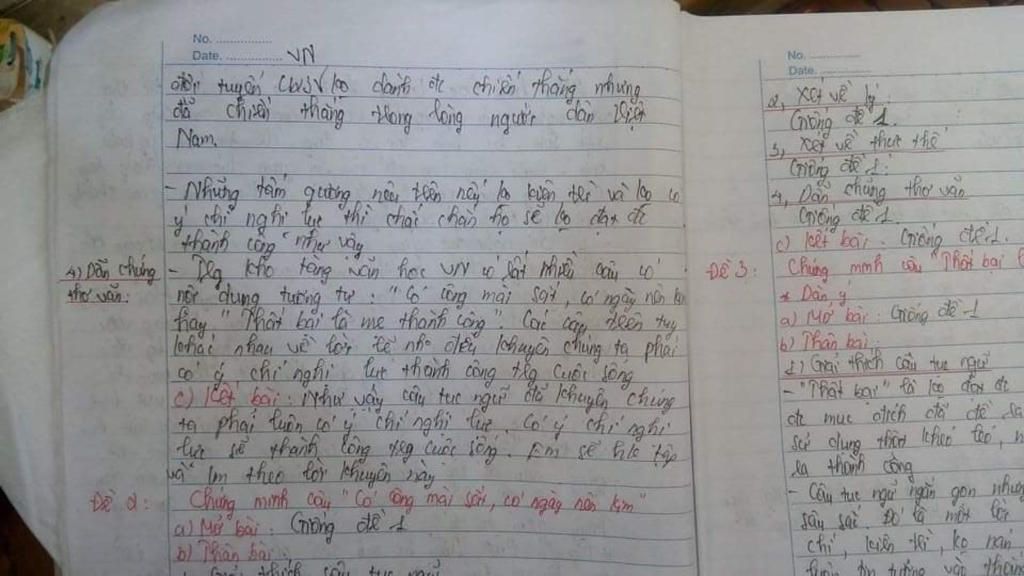 No. ..............
Date. ..............
VN
đội tuyển U23VN ko dành đc chiến thắng nhưng
đã chiến thắng trong lòng người dân Việt
Nam.
- Những tấm gương nêu trên nếu ko kiên trì và ko có
ý chí nghị lực thì chắc chắn họ sẽ ko đạt đc
thành công như vậy
4) Dẫn chứng
thơ văn:
- Trg kho tàng văn học VN có rất nhiều câu có
nội dung tương tự: "Có công mài sắt, có ngày nên kim
hay "Thất bại là mẹ thành công". Các câu trên tuy
khác nhau về lời lẽ nhg đều khuyên chúng ta phải
có ý chí nghị lực thành công trg cuộc sống
c) Kết bài: Như vậy câu tục ngữ đã khuyên chúng
ta phải luôn có ý chí nghị lực. Có ý chí nghị
lực sẽ thành công trg cuộc sống. Em sẽ học tập
và lm theo lời khuyên này
Đề 2: Chứng minh câu "Có công mài sắt, có ngày nên kim"
a) Mở bài: Giống đề 1
b) Thân bài:
1, Giải thích câu tục ngữ
No. ..............
Date. ..............
2, Xét về lý:
Giống đề 1.
3, Xét về thực tế
Giống đề 1.
4, Dẫn chứng thơ văn
Giống đề 1.
c) Kết bài: Giống đề 1.
Đề 3: Chứng minh câu "Thất bại l
* Dàn ý
a) Mở bài: Giống đề 1
b) Thân bài:
1) Giải thích câu tục ngữ
- "Thất bại" là ko đạt đc
đc mục đích đã đề ra
sử dụng thật khéo léo,
ra thành công
- Câu tục ngữ ngắn gọn nhưng
sâu sắc. Đó là một lời
chí, kiên trì, ko nản
luôn tin tưởng vào thành